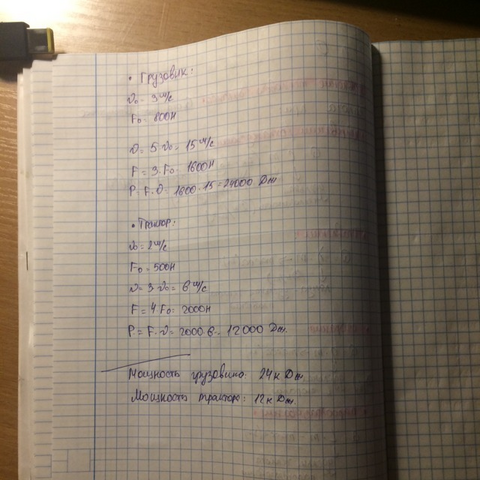 • Грузовик:
v₀ = 3 м/с
F₀ = 800Н
v = 5·v₀ = 15 м/с
F = 3 F₀ = 1600Н
P = F·v = 1600·15 = 24000 Дж
• Трактор:
v₀ = 2 м/с
F₀ = 500Н
v = 3 v₀ = 6 м/с
F = 4 F₀ = 2000Н
P = F·v = 2000·6 = 12000 Дж.
Мощность грузовика: 24 к Дж.
Мощность трактора: 12 к Дж.